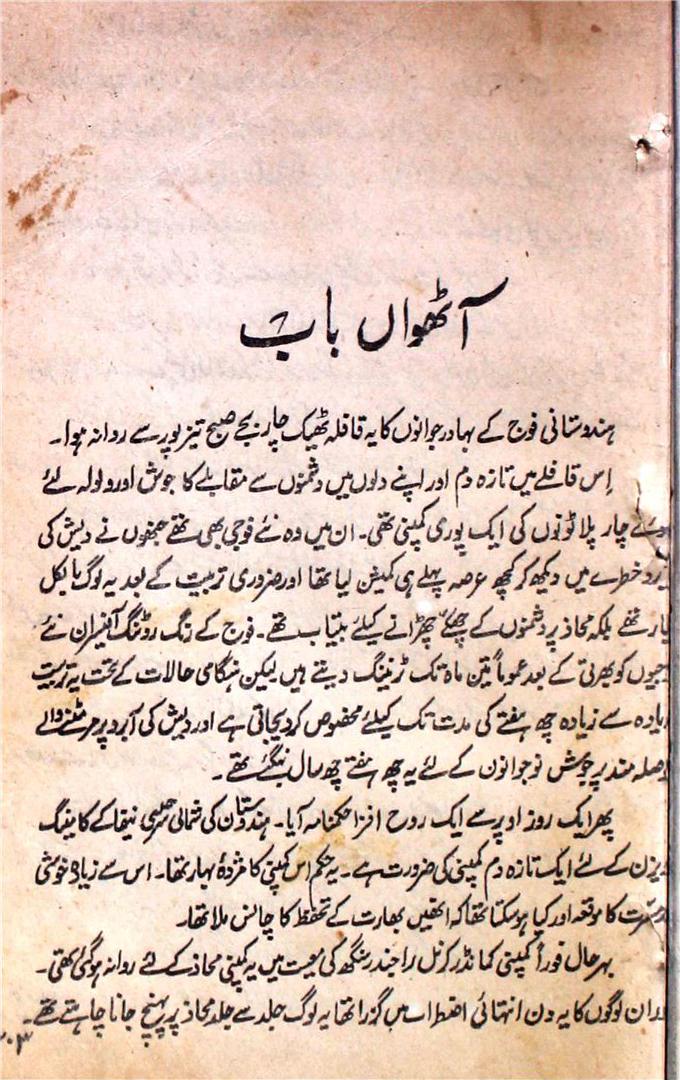 آٹھواں باب
ہندوستانی فوج کے بہادر جوانوں کا یہ قافلہ ٹھیک چار بجے صبح تیزپور سے روانہ ہوا۔
اِس قافلے میں تازہ دم اور اپنے دلوں میں دشمنوں سے مقابلے کا جوش اور ولولہ لئے
ہوئے چار پلاٹونوں کی ایک پوری کمپنی تھی۔ ان میں وہ نئے فوجی بھی تھے جنھوں نے دیش کی
خطرے میں دیکھ کر کچھ عرصہ پہلے ہی کمیشن لیا تھا اور ضروری تربیت کے بعد یہ لوگ بالکل
تھے بلکہ محاذ پر دشمنوں کے چھکے چھڑانے کیلئے بیتاب تھے۔ فوج کے رنگ روٹنگ آفیسران نئے
کو بھرتی کے بعد عموماً تین ماہ تک ٹریننگ دیتے ہیں لیکن ہنگامی حالات کے تحت یہ تربیت
زیادہ سے زیادہ چھ ہفتے کی مدت تک کیلئے مخصوص کردیجاتی ہے اور دیش کی آبرو پر مر مٹنے والے
مند پرجوش نوجوانون کے لئے یہ چھ ہفتے چھ سال بن گئے تھے۔
پھر ایک روز اوپر سے ایک روح افزا حکمنامہ آیا۔ ہندوستان کی شمالی سرحدی نیفا کے کامینگ
ڈویزن کے لئے ایک تازہ دم کمپنی کی ضرورت ہے۔ یہ حکم اس کمپنی کا مژدۂ بہار تھا۔ اس سے زیادہ خوشی
کا موقعہ اور کیا ہوسکتا تھا کہ انھیں بھارت کے تحفظ کا چانس ملا تھا۔
بہرحال فوراً کمپنی کمانڈر کرنل راجندر سنگھ کی معیت میں یہ کمپنی محاذ کے لئے روانہ ہوگئی تھی۔
ان لوگوں کا یہ دن انتہائی اضطراب میں گزرا تھا یہ لوگ جلد سے جلد محاذ پر پہنچ جانا چاہتے تھے۔